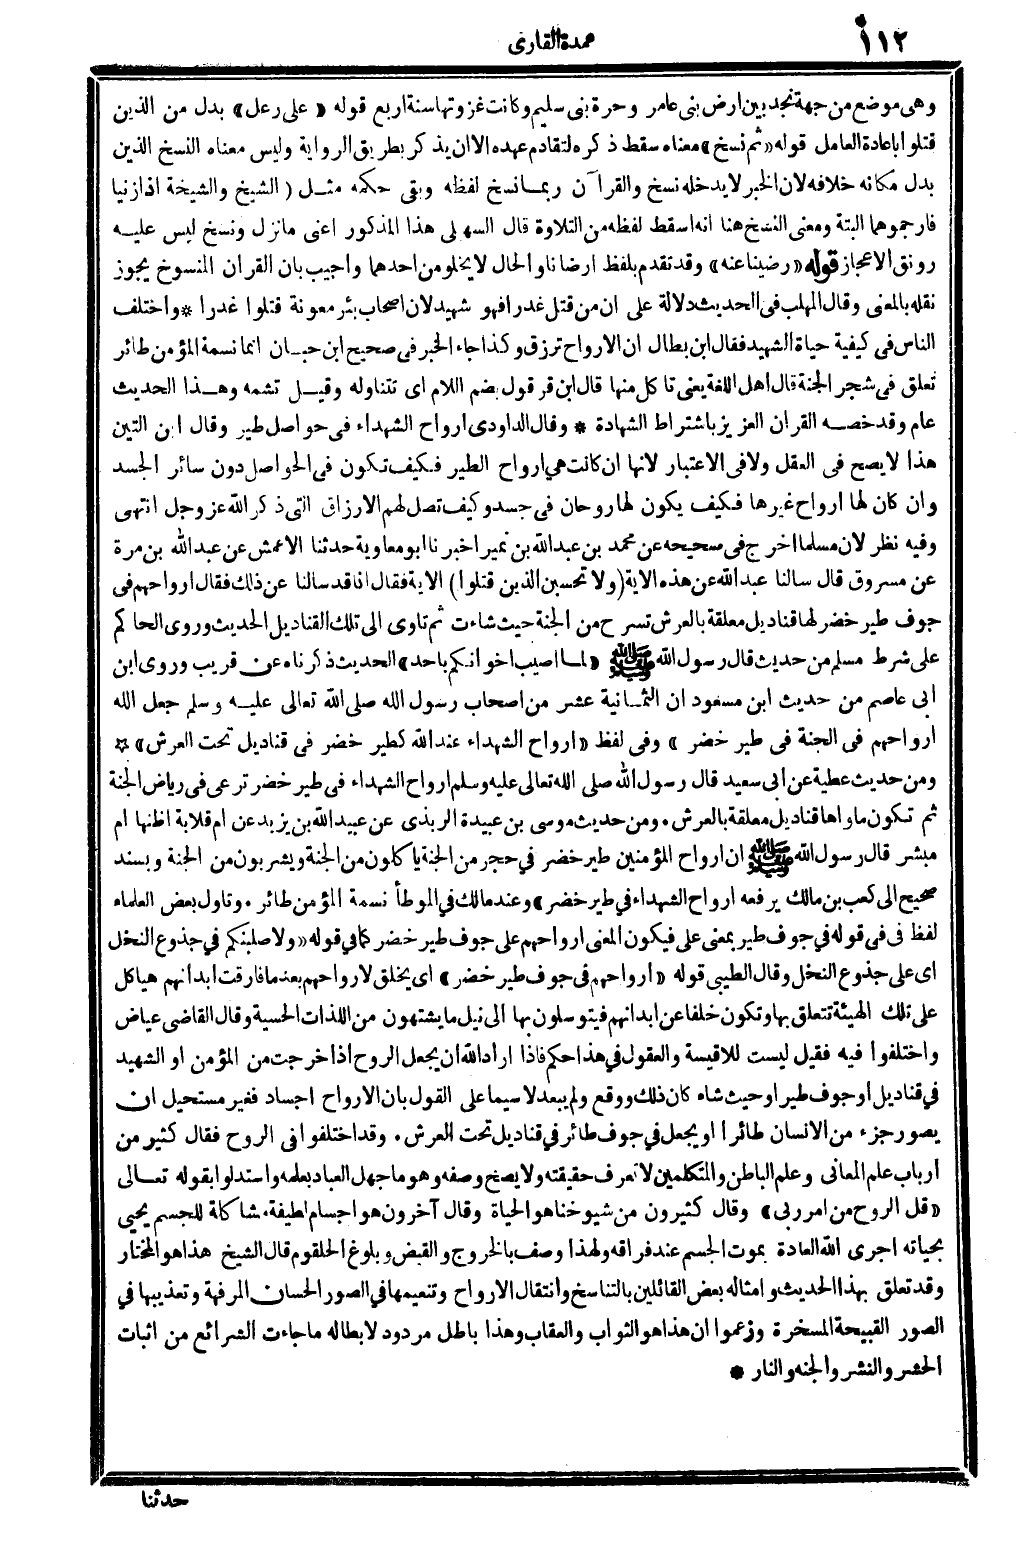 ١١٢
عمدة القارى
وهى موضع من جهة نجد بين ارض بنى عامر وحرة بنى سليم وكانت غزوتها سنة اربع قوله « على رعل » بدل من الذين
قتلوا باعادة العامل قوله « ثم نسخ » معناه سقط ذكره لتقادم عهده الا ان يذكر بطريق الرواية وليس معناه النسخ الذين
بدل مكانه خلافه لان الخبر لا يدخله نسخ والقرآن ربما نسخ لفظه وبقى حكمه مثل ( الشيخ والشيخة اذا زنيا
فارجموهما البتة ومعنى النسخ هنا انه اسقط لفظه من التلاوة قال السهيلى هذا المذكور اعنى ما نزل ونسخ ليس عليه
رونق الاعجاز قوله « رضينا عنه » وقد تقدم بلفظ ارضانا والحال لا يخلو من احدهما واجيب بان القران المنسوخ يجوز
نقله بالمعنى وقال المهلب فى الحديث دلالة على ان من قتل غدرا فهو شهيد لان اصحاب بئر معونة قتلوا غدرا * واختلف
الناس فى كيفية حياة الشهيد فقال ابن بطال ان الارواح ترزق وكذا جاء الخبر فى صحيح ابن حبان انما نسمة المؤمن طائر
تعلق فى شجر الجنة قال اهل اللغة يعنى تاكل منها قال ابن قرقول بضم اللام اى تتناوله وقيل تشمه وهذا الحديث
عام وقد خصه القران العزيز باشتراط الشهادة * وقال الداودى ارواح الشهداء فى حواصل طير وقال ابن التين
هذا لا يصح فى العقل ولا فى الاعتبار لانها ان كانت هى ارواح الطير فكيف تكون فى الحواصل دون سائر الجسد
وان كان لها ارواح غيرها فكيف يكون لها روحان فى جسد وكيف تصل لهم الارزاق التى ذكر الله عز وجل انتهى
وفيه نظر لان مسلما اخرج فى صحيحه عن محمد بن عبدالله بن نمير اخبرنا ابو معاوية حدثنا الاعمش عن عبدالله بن مرة
عن مسروق قال سالنا عبدالله عن هذه الاية ( ولا تحسبن الذين قتلوا ) الاية فقال انا قد سالنا عن ذلك فقال ارواحهم فى
جوف طير خضر لها قناديل معلقة بالعرش تسرح من الجنة حيث شاءت ثم تاوى الى تلك القناديل الحديث وروى الحاكم
على شرط مسلم من حديث قال رسول الله ﷺ « لما اصيب اخوانكم باحد » الحديث ذكرناه عن قريب وروى ابن
ابى عاصم من حديث ابن مسعود ان الثمانية عشر من اصحاب رسول الله صلى الله تعالى عليه وسلم جعل الله
ارواحهم فى الجنة فى طير خضر » وفى لفظ « ارواح الشهداء عند الله كطير خضر فى قناديل تحت العرش » ☆
ومن حديث عطية عن أبى سعيد قال رسول الله صلى الله تعالى عليه وسلم ارواح الشهداء فى طير خضر ترعى فى رياض الجنة
ثم تكون ماواها قناديل معلقة بالعرش . ومن حديث موسى بن عبيدة الربذى عن عبيد الله بن يزيد عن ام قلابة اظنها ام
مبشر قال رسول الله ﷺ ان ارواح المؤمنين طير خضر في حجر من الجنة ياكلون من الجنة ويشربون من الجنة وبسند
صحيح الى كعب بن مالك يرفعه ارواح الشهداء في طير خضر » وعند مالك في الموطأ نسمة المؤمن طائر . وتاول بعض العلماء
لفظ فى فى قوله في جوف طير بمعنى على فيكون المعنى ارواحهم على جوف طير خضر كما في قوله « ولاصلبنكم في جذوع النخل
اى على جذوع النخل وقال الطيبى قوله « أرواحهم فى جوف طير خضر » اى يخلق لارواحهم بعد ما فارقت أبدانهم هياكل
على تلك الهيئة تتعلق بها وتكون خلفا عن ابدانهم فيتوسلون بها الى نيل ما يشتهون من اللذات الحسية وقال القاضى عياض
واختلفوا فيه فقيل ليست للاقيسة والعقول في هذا حكم فاذا اراد الله ان يجعل الروح اذا خرجت من المؤمن او الشهيد
في قناديل أو جوف طير او حيث شاء كان ذلك ووقع ولم يبعد لاسيما على القول بان الارواح اجساد فغير مستحيل ان
يصور جزء من الانسان طائرا او يجعل في جوف طائر في قناديل تحت العرش . وقد اختلفوا فى الروح فقال كثير من
أرباب علم المعانى وعلم الباطن والمتكلمين لا تعرف حقيقته ولا يصح وصفه وهو ما جهل العباد بعلمه واستدلوا بقوله تعالى
« قل الروح من امر ربى » وقال كثيرون من شيوخنا هو الحياة وقال آخرون هو اجسام لطيفة مشاكلة للجسم يحيى
بحياته اجرى الله العادة بموت الجسم عند فراقه ولهذا وصف بالخروج والقبض وبلوغ الحلقوم قال الشيخ هذا هو المختار
وقد تعلق بهذا الحديث وامثاله بعض القائلين بالتناسخ وانتقال الارواح وتنعيمها في الصور الحسان المرفهة وتعذيبها في
الصور القبيحة المسخرة وزعموا ان هذا هو الثواب والعقاب وهذا باطل مردود لابطاله ما جاءت الشرائع من اثبات
الحشر والنشر والجنه والنار *
حدثنا